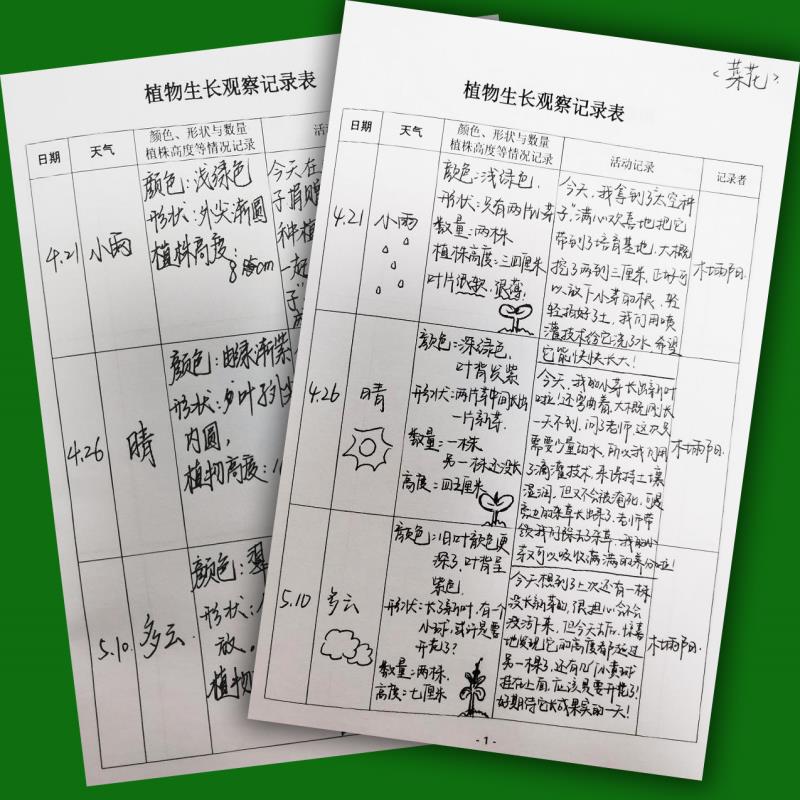 植物生长观察记录表
日期
天气
颜色、形状与数量
植株高度等情况记录
4.21
小雨
颜色:浅绿色
形状:外尖渐圆
植株高度:
cm
今天在
种植
一起
4.26
晴
颜色:由绿渐紫
形状:
内圆,
植物高度:
5.10
多云
颜色:翠
形状:
放。
植物
<菜花>
植物生长观察记录表
日期
天气
颜色、形状与数量
植株高度等情况记录
活动记录
记录者
4.21
小雨
颜色:浅绿色,
形状:只有两片小芽
数量:两株
植株高度:三四厘米
叶片很软,很薄,
今天,我拿到了太空种
子,满心欢喜地把它
带到了培育基地,大概
挖了两到三厘米,正好可
以放下小芽的根,轻
轻拍好土,我们用喷
灌技术给它浇了水,希望
它能快快长大!
4.26
晴
颜色:深绿色,
叶背发紫
形状:两片芽中间长出
一片新芽,
数量:一株
另一株还没长
高度:四五厘米
今天,我的小芽长出新叶
啦!还弯曲着,大概刚长
一天不到,问了老师,这次只
需要少量的水,所以我们用
了滴灌技术,来保持土壤
湿润,但又不会被淹死,可是
旁边的杂草长出来了,老师带
领我们除去了杂草,我的小
菜可以吸收满满的养份啦!
5.10
多云
颜色:旧叶颜色更
深了,叶背呈
紫色,
形状:长了新叶,有一个
小球,或许是要
开花了?
数量:两株,
高度:七厘米
今天想到了上次还有一株
没长新芽的,很担心会不会
没活下来,但今天去后,惊喜
地发现它的高度都超过
另一棵了,还有几个小黄球
挂在上面,应该是要开花了!
好期待它长成果实的一天!
- 1 -